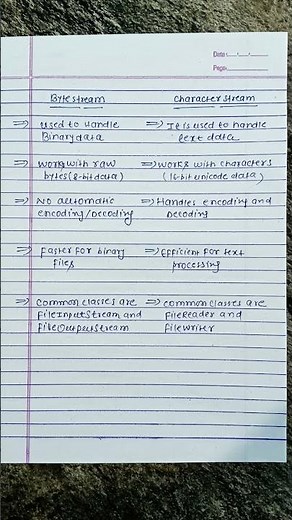 Date:
Page:
Bytestream
Character stream
⇒ Used to Handle
Binary data
⇒ It is used to handle
text data
⇒ Working with raw
bytes (8-bit data)
⇒ Works with characters
(16-bit unicode data)
⇒ No automatic
encoding/Decoding
⇒ Handles encoding and
Decoding
⇒ Faster for binary
files
⇒ Efficient for text
processing
⇒ Common classes are
FileInputStream and
FileOutputStream
⇒ Common classes are
FileReader and
FileWriter